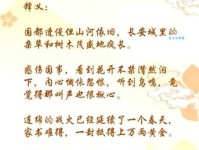 释义：
国都遭侵但山河依旧，长安城里的
杂草和树木茂盛地疯长。
感伤国事，看到花开不禁潸然泪
下，内心惆怅怨恨，听到鸟鸣，竟
觉得那叫声也很揪心。
连绵的战火已经延续了一个春天，
家书难得，一封抵得上万两黄金。